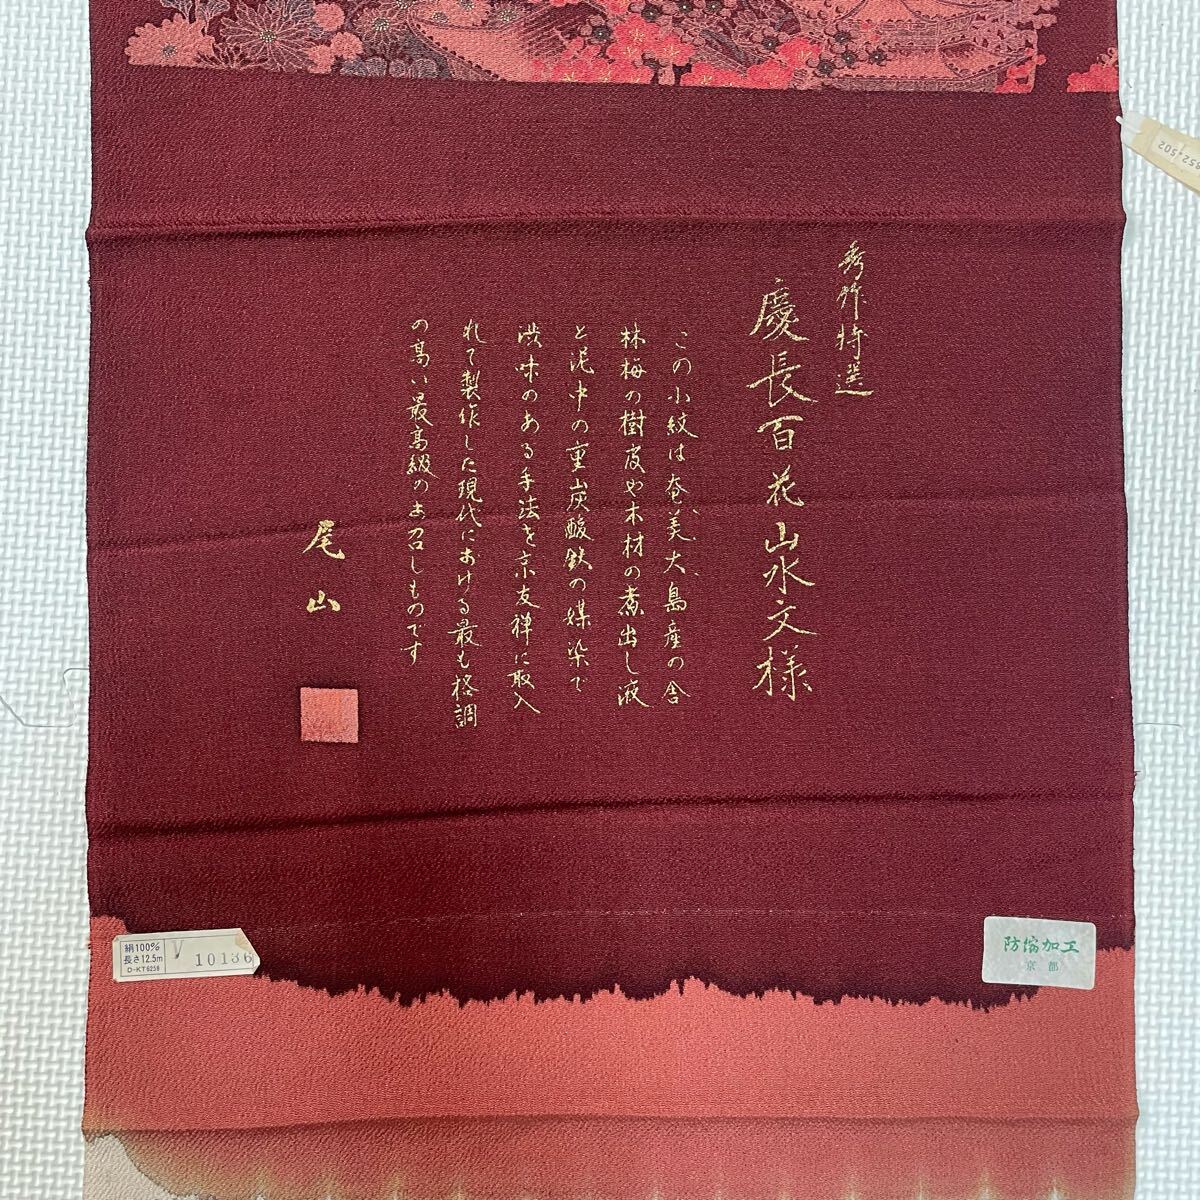 秀作特選
慶長百花山水文様
この小紋は奄美大島産の舎
林梅の樹皮や木材の煮出し液
と泥中の重炭酸鉄の媒染で
渋味のある手法を京友禅に取入
れて製作した現代における最も格調
の高い最高級のお召しものです
尾山
絹100%
長さ12.5m
D-KT6258
V
10136
防縮加工
京都